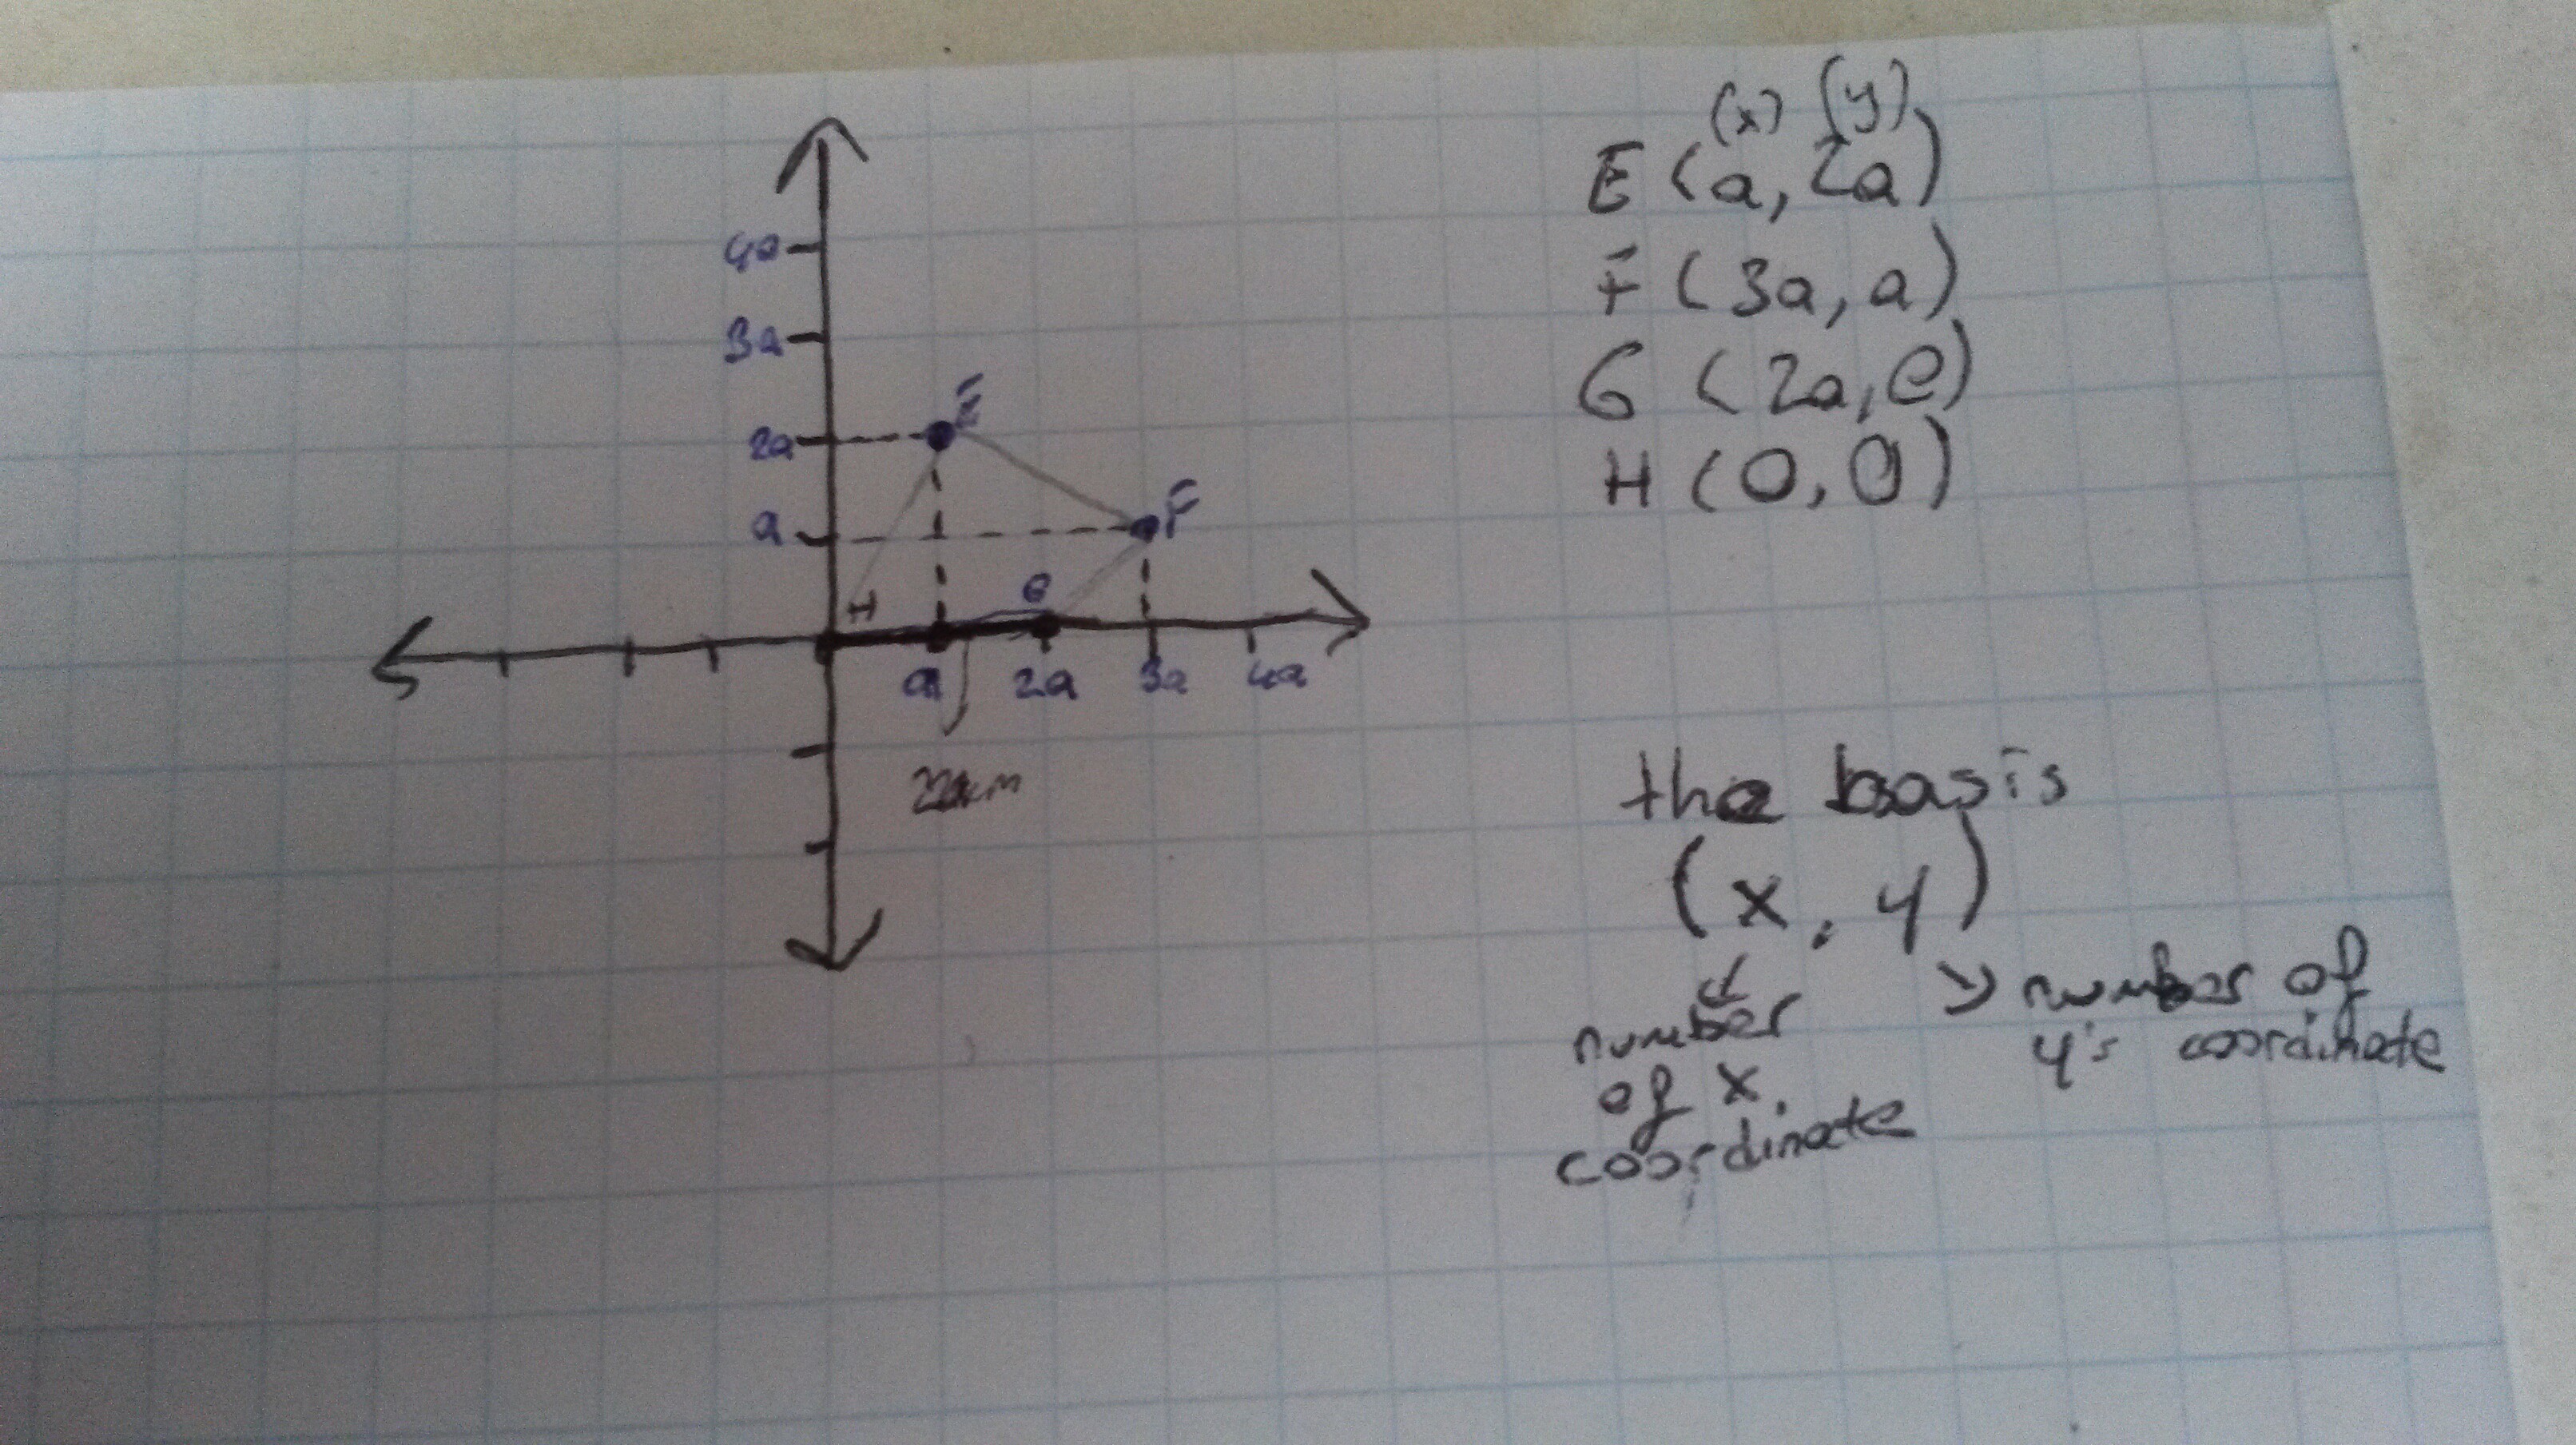 (x) (y)
E (a, 2a)
F (3a, a)
G (2a, 0)
H (0, 0)
4a
3a
2a
a
E
F
H
G
a
2a
3a
4a
the basis
(x, y)
number of x coordinate
number of y's coordinate